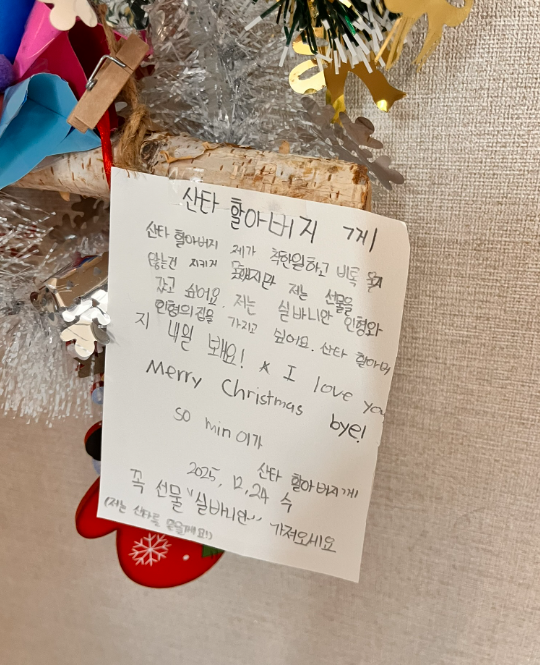 산타 할아버지 께
산타 할아버지 제가 착한일하고 비록 울지
않는건 지키지 못했지만 저는 선물을
갖고 싶어요 저는 실바니안 인형와
인형의집을 가지고 싶어요. 산타 할아버
지 내일 봬요! * I love you
Merry Christmas bye!
so min 이가
산타 할아버지께
2025, 12, 24 수
꼭 선물 "실바니안" 가져오세요
(저는 산타를 믿을게요!)